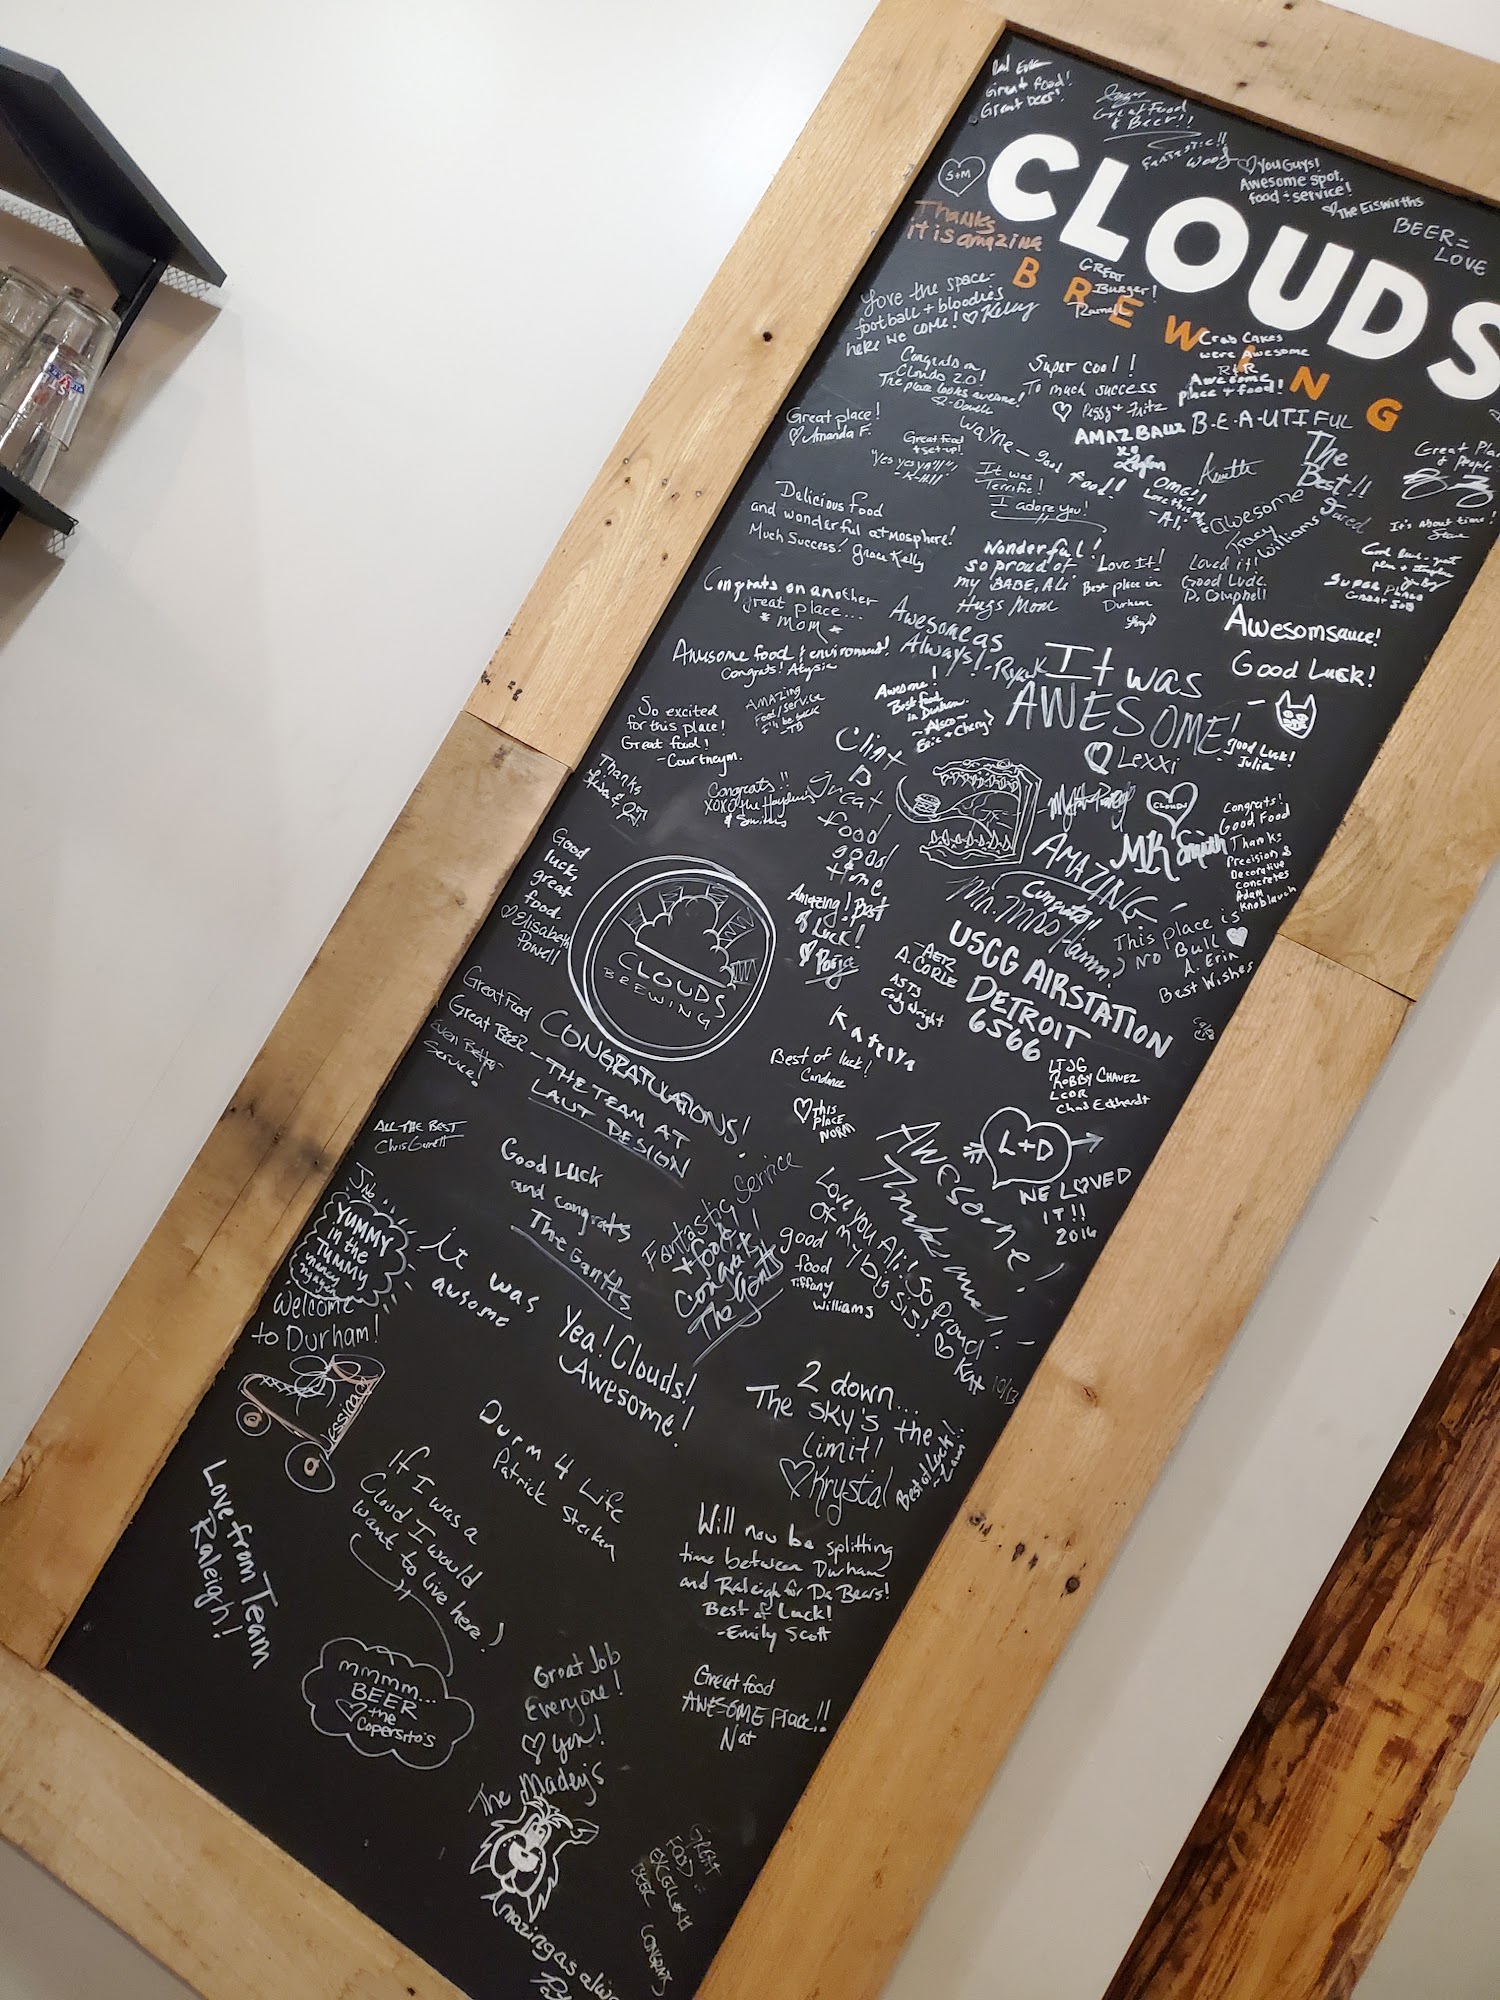 Great food!
Great beer!
Great Food
& Beer!!
Fantastic!!
Woof
♡ You Guys!
Awesome spot,
food + service!
♡ The Eiswirths
BEER =
LOVE
S+M
CLOUDS
BREWING
Thanks
it is amazing
GREAT
Burger!
Love the space-
football + bloodies
here we come! ♡ Kelly
Crab Cakes
were Awesome
R&R
Awesome
place + food!
Congrats on
Clouds 2.0!
The place looks awesome!
Super cool!!
To much success
♡ Peggy + Fritz
B-E-A-UTIFUL
Great place!
♡ Amanda F.
Great food
+ set-up!
Wayne - good food!!
AMAZBALLZ
xo
The
Best!!
& people
It was
Terrific!
I adore you!
OMG!!
Love this place
-Ali
Awesome
Tracy
Williams
It's About time!
Delicious food
and wonderful atmosphere!
Much Success! Grace Kelly
Wonderful!
so proud of
my BABE, Ali
Hugs Mom
Love It!
Best place in
Durham
Loved it!
Good Luck.
D. Campbell
SUPER PLACE
Congrats on another
great place...
* MOM *
Awesome as
Always! -Ryan
Awesomsauce!
Good Luck!
Awesome food & environment!
Congrats! Alysia
It was
AWESOME!
♡ Lexxi
AMAZING
Food/service
I'll be back
-TB
Awesome!
Best food
in Durham.
Good Luck!
Julia
So excited
for this place!
Great food!
-Courtneym.
Clint
B
Great
food
good
time
Thanks
Congrats!!
XOXO the Haydens
& Smiths
CLOUDS
MK Smith
Congrats!
Good Food
Thanks
Precision &
Decorative
Concretes
Adam
Knoblauch
AMAZING
Congrats!
Good
luck,
great
food.
♡ Elisabeth
Powell
CLOUDS
BREWING
Amazing! Best
of Luck!
♡ Paige
This place is
No Bull ♡
A. Erin
Best Wishes
USCG AIRSTATION
DETROIT
6566
AET2
A. CORLE
AST3
Cody Wright
LTJG
ROBBY CHAVEZ
LCDR
Chad Eckhardt
Great Food
Great BEER -
Even Better
Service!
CONGRATULATIONS!
- THE TEAM AT
LAUT DESIGN
Best of luck!
Candace
♡ THIS
PLACE
NORM
ALL THE BEST
Chris Garrett
L+D
WE LOVED
IT!!
2016
AWESOME!
Good Luck
and congrats
The Gantts
Fantastic Service
+ food!!
Congrats!
The Gantts
Love you Ali! So Proud
of my big sis!
♡ Kat 10/13
good
food
Tiffany
Williams
YUMMY
in the
TUMMY
it was
awsome
Welcome
to Durham!
Jessica
Yea! Clouds!
Awesome!
2 down...
The SKY's the
limit!
♡ Krystal
Durm 4 Life
Patrick
If I was a
Cloud I would
want to live here!
Love from Team
Raleigh!
Will now be splitting
time between Durham
and Raleigh for Da Bears!
Best of Luck!
-Emily Scott
mmmm...
BEER
♡ the
Copersito's
Great Job
Everyone!
♡ you!
The Madey's
Great food
AWESOME Place!!
Nat
GREAT
FOOD
EXCELLENT
BEER
CONGRATS
Amazing as alwa